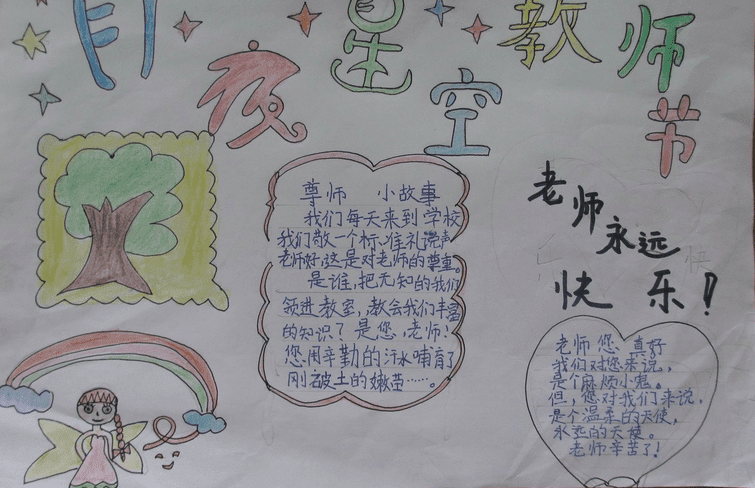 月夜星空 教师节
尊师 小故事
我们每天来到学校
我们敬一个标准礼说声
老师好,这是对老师的尊重。
是谁,把无知的我们
领进教室,教会我们丰富
的知识?是您,老师!
您用辛勤的汗水哺育了
刚破土的嫩苗……。
老师永远
快乐!
老师您真好
我们对您来说,
是个麻烦小鬼。
但,您对我们来说,
是个温柔的天使,
永远的天使。
老师辛苦了!